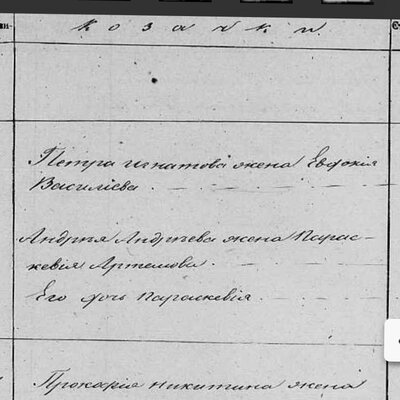 козачки
Петра Игнатова жена Евфокія
Василіева
Андрѣя Андрѣева жена Парас-
кевія Артемова
Его дочь Параскевія
Прокофія Никитина жена